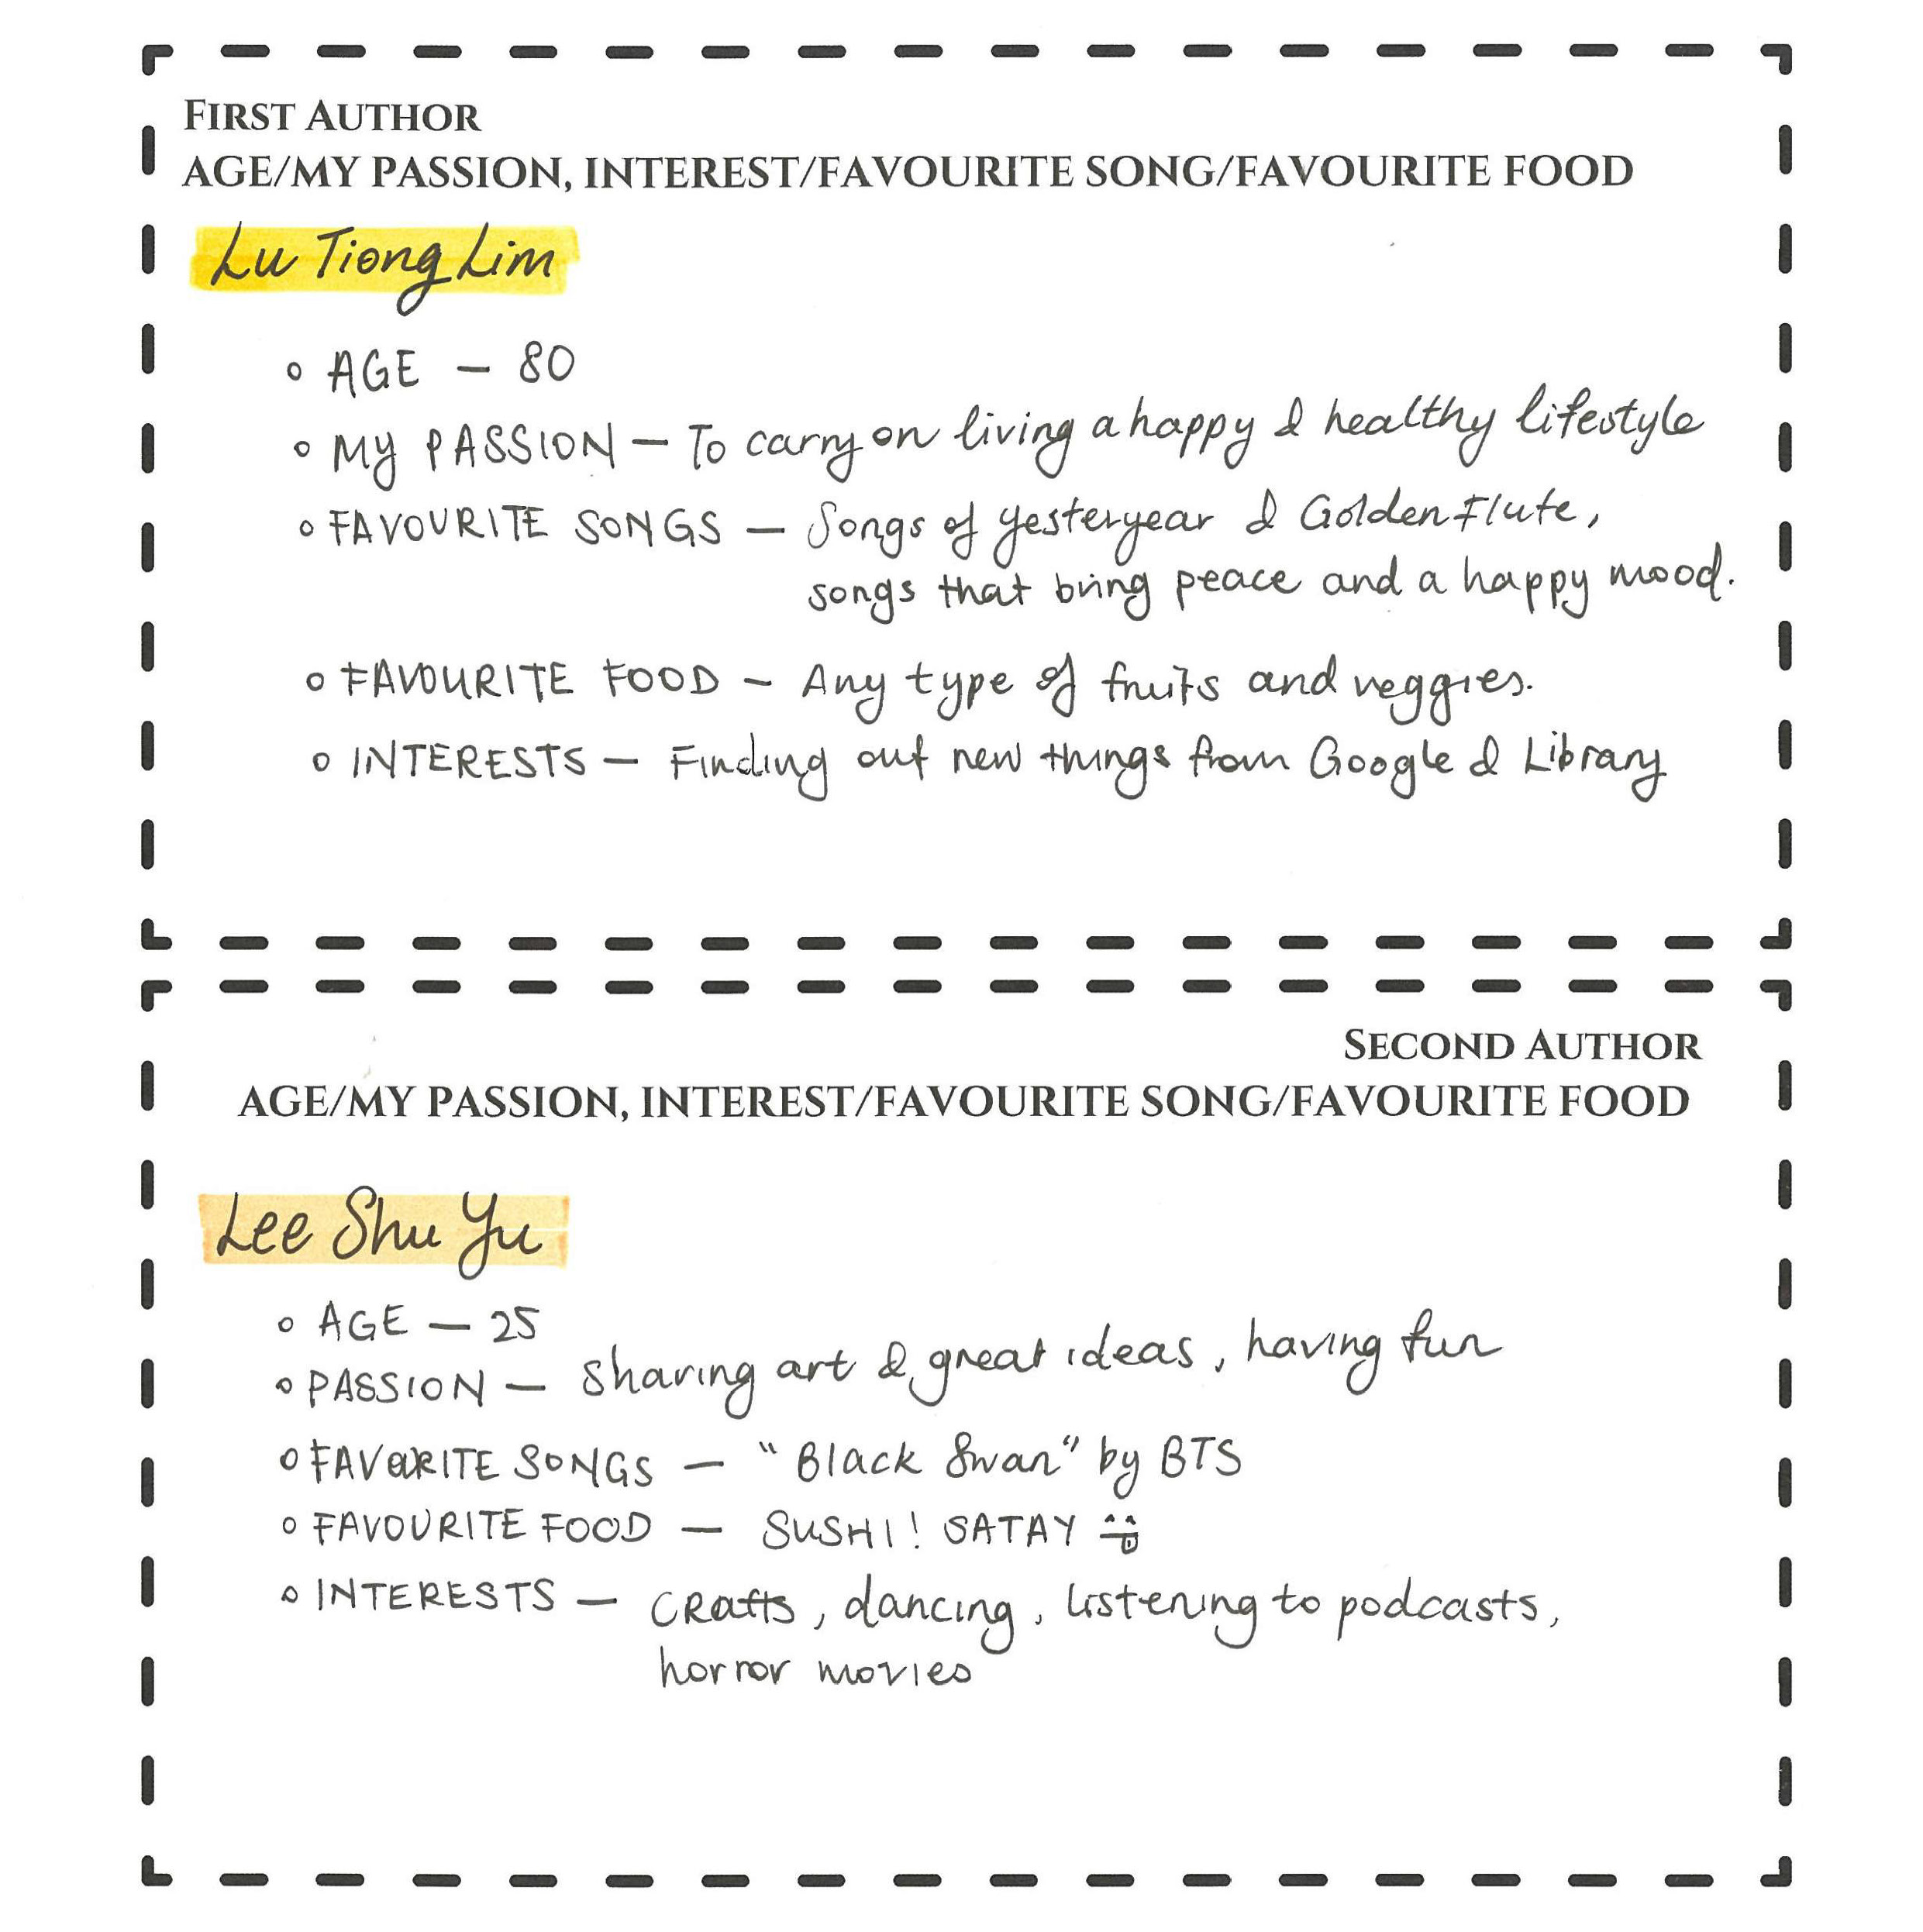 FIRST AUTHOR
AGE/MY PASSION, INTEREST/FAVOURITE SONG/FAVOURITE FOOD
Lu Tiong Lim
○ AGE — 80
○ MY PASSION — To carry on living a happy & healthy lifestyle
○ FAVOURITE SONGS — Songs of yesteryear & Golden Flute,
songs that bring peace and a happy mood.
○ FAVOURITE FOOD - Any type of fruits and veggies.
○ INTERESTS — Finding out new things from Google & Library
SECOND AUTHOR
AGE/MY PASSION, INTEREST/FAVOURITE SONG/FAVOURITE FOOD
Lee Shu Yu
○ AGE — 25
○ PASSION — sharing art & great ideas, having fun
○ FAVOURITE SONGS — "Black Swan" by BTS
○ FAVOURITE FOOD — SUSHI! SATAY
○ INTERESTS — CRafts, dancing, listening to podcasts,
horror movies